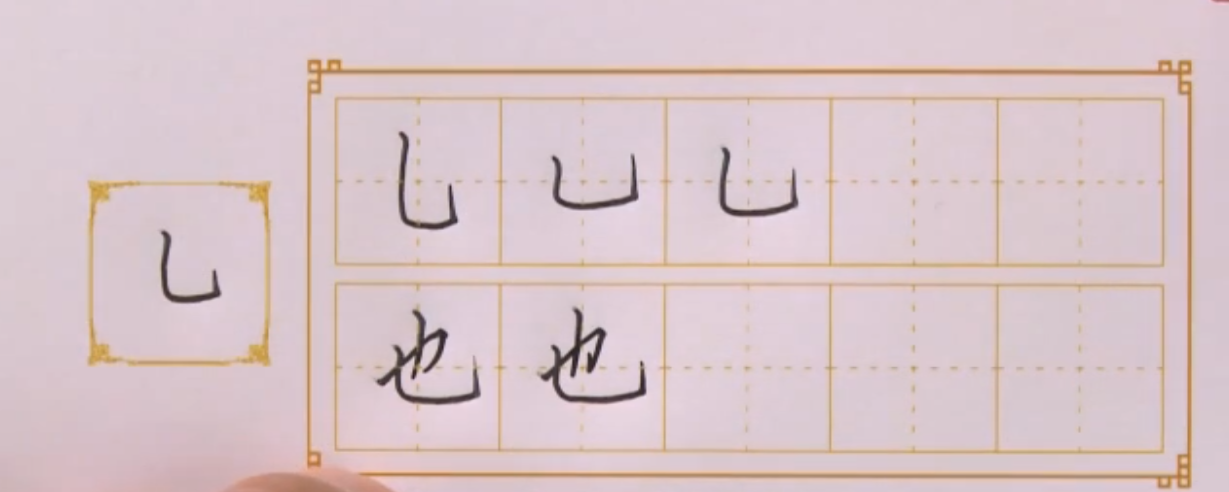 乚
乚 乚 乚
也 也